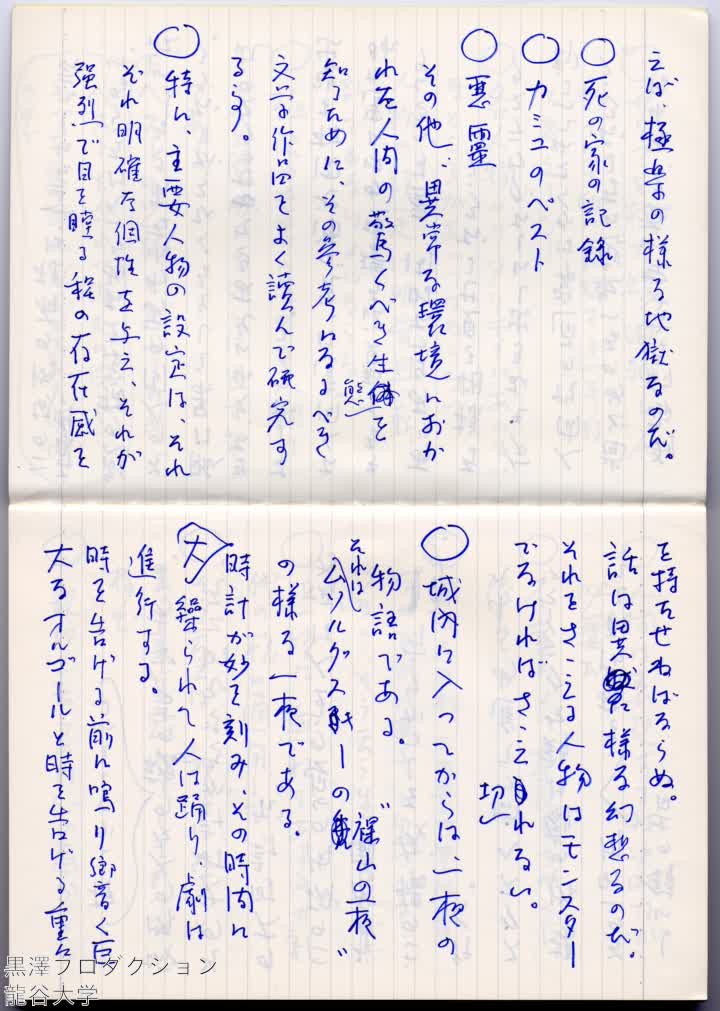 えば、極楽の様な地獄なのだ。
○ 死の家の記録
○ カミュのペスト
○ 悪霊
その他、異常な環境におか
れた人間の驚くべき生態を
知るために、その参考になるべき
文学作品をよく讀んで研究す
る事。
○ 特に、主要人物の設定は、それ
ぞれ明確な個性を与え、それが
强烈で目を瞠る程の存在感を
を持たせねばならぬ。
話は異様な幻想なのだ。
それをさゝえる人物はモンスター
でなければさゝえ切れない。
○ 城内に入ってからは、一夜の
物語である。
それはムソルグスキーの〝裸山の一夜〟
の様な一夜である。
時計が妙を刻み、その時間に
操られて人は踊り、劇は
進行する。
大
時を告げる前に鳴り響く巨
大なオルゴールと時を告げる重々
黒澤プロダクション
龍谷大学